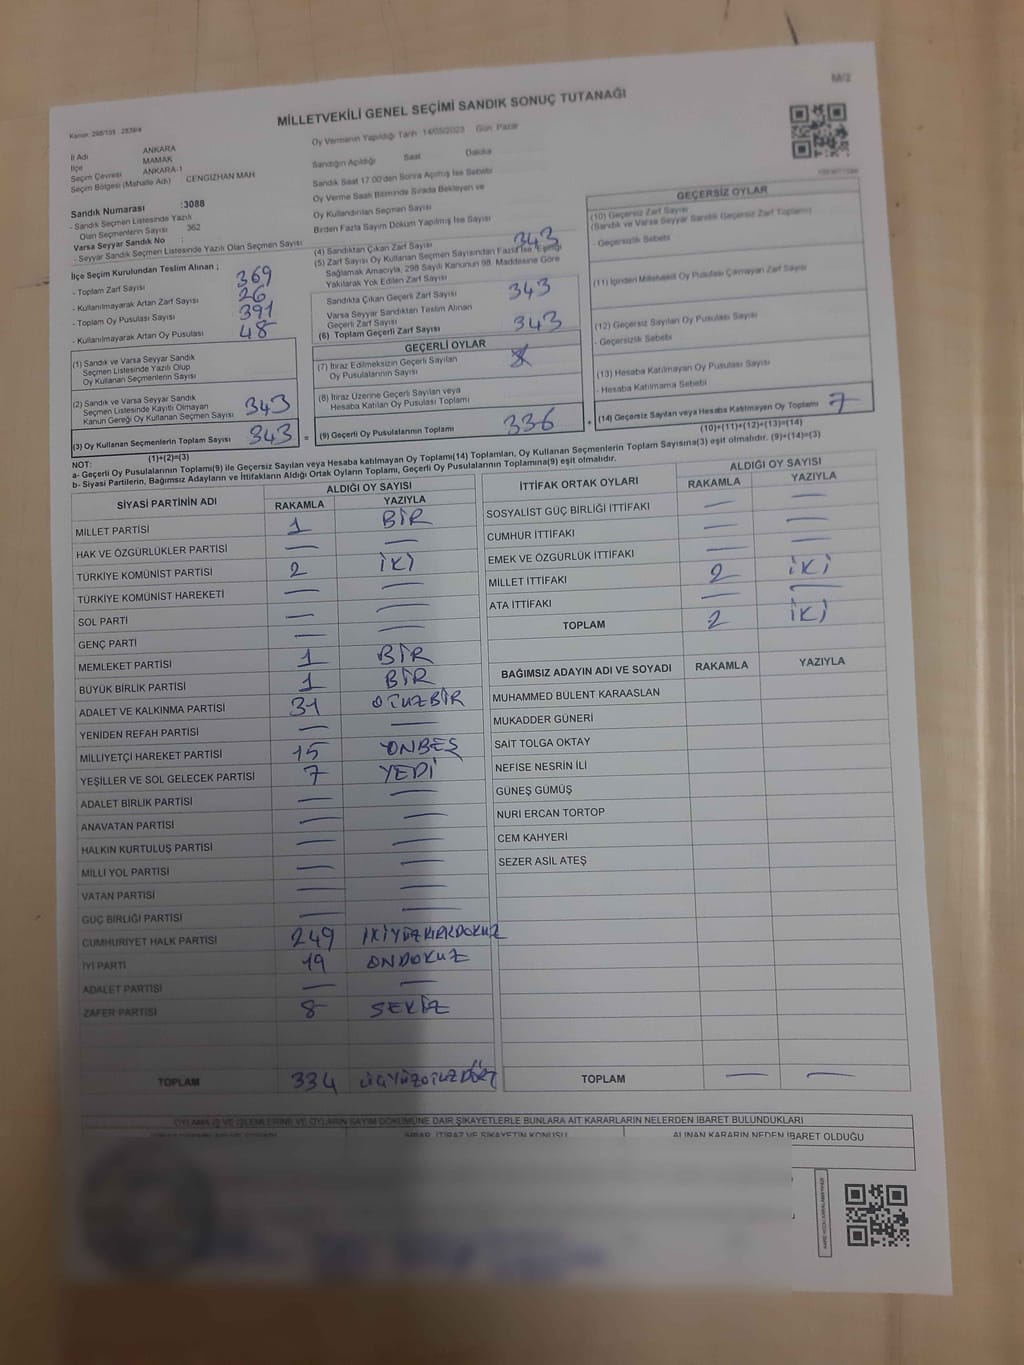 M/2
MİLLETVEKİLİ GENEL SEÇİMİ SANDIK SONUÇ TUTANAĞI
Kanun: 298/105 2839/4
İl Adı ANKARA
İlçe MAMAK
Seçim Çevresi ANKARA-1
Seçim Bölgesi (Mahalle Adı) CENGİZHAN MAH
Sandık Numarası :3088
- Sandık Seçmen Listesinde Yazılı
Olan Seçmenlerin Sayısı 362
Varsa Seyyar Sandık No :
- Seyyar Sandık Seçmen Listesinde Yazılı Olan Seçmen Sayısı
İlçe Seçim Kurulundan Teslim Alınan ;
- Toplam Zarf Sayısı 369
- Kullanılmayarak Artan Zarf Sayısı 26
- Toplam Oy Pusulası Sayısı 391
- Kullanılmayarak Artan Oy Pusulası 48
(1) Sandık ve Varsa Seyyar Sandık
Seçmen Listesinde Yazılı Olup
Oy Kullanan Seçmenlerin Sayısı
(2) Sandık ve Varsa Seyyar Sandık
Seçmen Listesinde Kayıtlı Olmayan
Kanun Gereği Oy Kullanan Seçmen Sayısı 343
(3) Oy Kullanan Seçmenlerin Toplam Sayısı 343
(1)+(2)=(3)
Oy Vermenin Yapıldığı Tarih 14/05/2023 Gün Pazar
Sandığın Açıldığı Saat Dakika
Sandık Saat 17.00'den Sonra Açılmış İse Sebebi
Oy Verme Saati Bitiminde Sırada Bekleyen ve
Oy Kullandırılan Seçmen Sayısı
Birden Fazla Sayım Döküm Yapılmış İse Sayısı
(4) Sandıktan Çıkan Zarf Sayısı 343
(5) Zarf Sayısı Oy Kullanan Seçmen Sayısından Fazla İse, Eşitliği
Sağlamak Amacıyla, 298 Sayılı Kanunun 98. Maddesine Göre
Yakılarak Yok Edilen Zarf Sayısı
Sandıkta Çıkan Geçerli Zarf Sayısı 343
Varsa Seyyar Sandıktan Teslim Alınan
Geçerli Zarf Sayısı
(6) Toplam Geçerli Zarf Sayısı 343
GEÇERLİ OYLAR
(7) İtiraz Edilmeksizin Geçerli Sayılan
Oy Pusulalarının Sayısı
(8) İtiraz Üzerine Geçerli Sayılan veya
Hesaba Katılan Oy Pusulası Toplamı
= (9) Geçerli Oy Pusulalarının Toplamı 336 +
GEÇERSİZ OYLAR
(10) Geçersiz Zarf Sayısı
(Sandık ve Varsa Seyyar Sandık Geçersiz Zarf Toplamı)
- Geçersizlik Sebebi
(11) İçinden Milletvekili Oy Pusulası Çıkmayan Zarf Sayısı
(12) Geçersiz Sayılan Oy Pusulası Sayısı
- Geçersizlik Sebebi
(13) Hesaba Katılmayan Oy Pusulası Sayısı
- Hesaba Katılmama Sebebi
(14) Geçersiz Sayılan veya Hesaba Katılmayan Oy Toplamı 7
(10)+(11)+(12)+(13)=(14)
NOT:
a- Geçerli Oy Pusulalarının Toplamı(9) ile Geçersiz Sayılan veya Hesaba katılmayan Oy Toplamı(14) Toplamları, Oy Kullanan Seçmenlerin Toplam Sayısına(3) eşit olmalıdır. (9)+(14)=(3)
b- Siyasi Partilerin, Bağımsız Adayların ve İttifakların Aldığı Ortak Oyların Toplamı, Geçerli Oy Pusulalarının Toplamına(9) eşit olmalıdır.
SİYASİ PARTİNİN ADI ALDIĞI OY SAYISI
RAKAMLA YAZIYLA
MİLLET PARTİSİ 1 BİR
HAK VE ÖZGÜRLÜKLER PARTİSİ — —
TÜRKİYE KOMÜNİST PARTİSİ 2 İKİ
TÜRKİYE KOMÜNİST HAREKETİ — —
SOL PARTİ — —
GENÇ PARTİ — —
MEMLEKET PARTİSİ 1 BİR
BÜYÜK BİRLİK PARTİSİ 1 BİR
ADALET VE KALKINMA PARTİSİ 31 OTUZBİR
YENİDEN REFAH PARTİSİ — —
MİLLİYETÇİ HAREKET PARTİSİ 15 ONBEŞ
YEŞİLLER VE SOL GELECEK PARTİSİ 7 YEDİ
ADALET BİRLİK PARTİSİ — —
ANAVATAN PARTİSİ — —
HALKIN KURTULUŞ PARTİSİ — —
MİLLİ YOL PARTİSİ — —
VATAN PARTİSİ — —
GÜÇ BİRLİĞİ PARTİSİ — —
CUMHURİYET HALK PARTİSİ 249 İKİYÜZKIRKDOKUZ
İYİ PARTİ 19 ONDOKUZ
ADALET PARTİSİ — —
ZAFER PARTİSİ 8 SEKİZ
TOPLAM 334 ÜÇYÜZOTUZDÖRT
İTTİFAK ORTAK OYLARI ALDIĞI OY SAYISI
RAKAMLA YAZIYLA
SOSYALİST GÜÇ BİRLİĞİ İTTİFAKI — —
CUMHUR İTTİFAKI — —
EMEK VE ÖZGÜRLÜK İTTİFAKI — —
MİLLET İTTİFAKI 2 İKİ
ATA İTTİFAKI — —
TOPLAM 2 İKİ
BAĞIMSIZ ADAYIN ADI VE SOYADI RAKAMLA YAZIYLA
MUHAMMED BÜLENT KARAASLAN
MUKADDER GÜNERİ
SAİT TOLGA OKTAY
NEFİSE NESRİN İLİ
GÜNEŞ GÜMÜŞ
NURİ ERCAN TORTOP
CEM KAHYERİ
SEZER ASİL ATEŞ
TOPLAM — —
OYLAMA İŞ VE İŞLEMLERİNE VE OYLARIN SAYIM DÖKÜMÜNE DAİR ŞİKAYETLERLE BUNLARA AİT KARARLARIN NELERDEN İBARET BULUNDUKLARI
İHBAR, İTİRAZ VE ŞİKAYETİN KONUSU ALINAN KARARIN NEDEN İBARET OLDUĞU